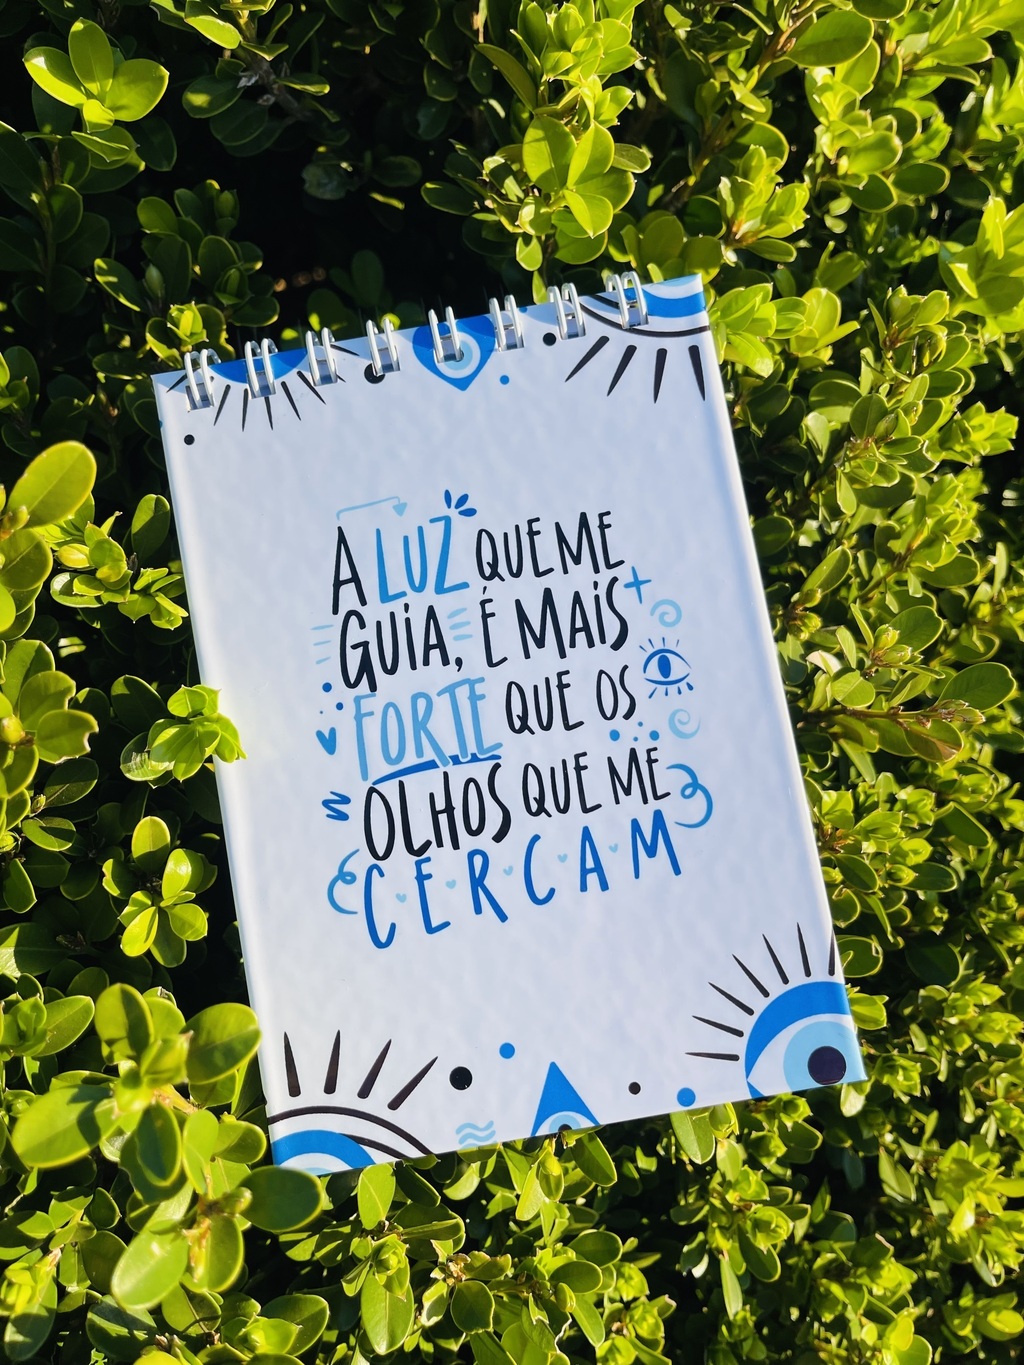 A LUZ QUE ME
GUIA, É MAIS
FORTE QUE OS
OLHOS QUE ME
CERCAM